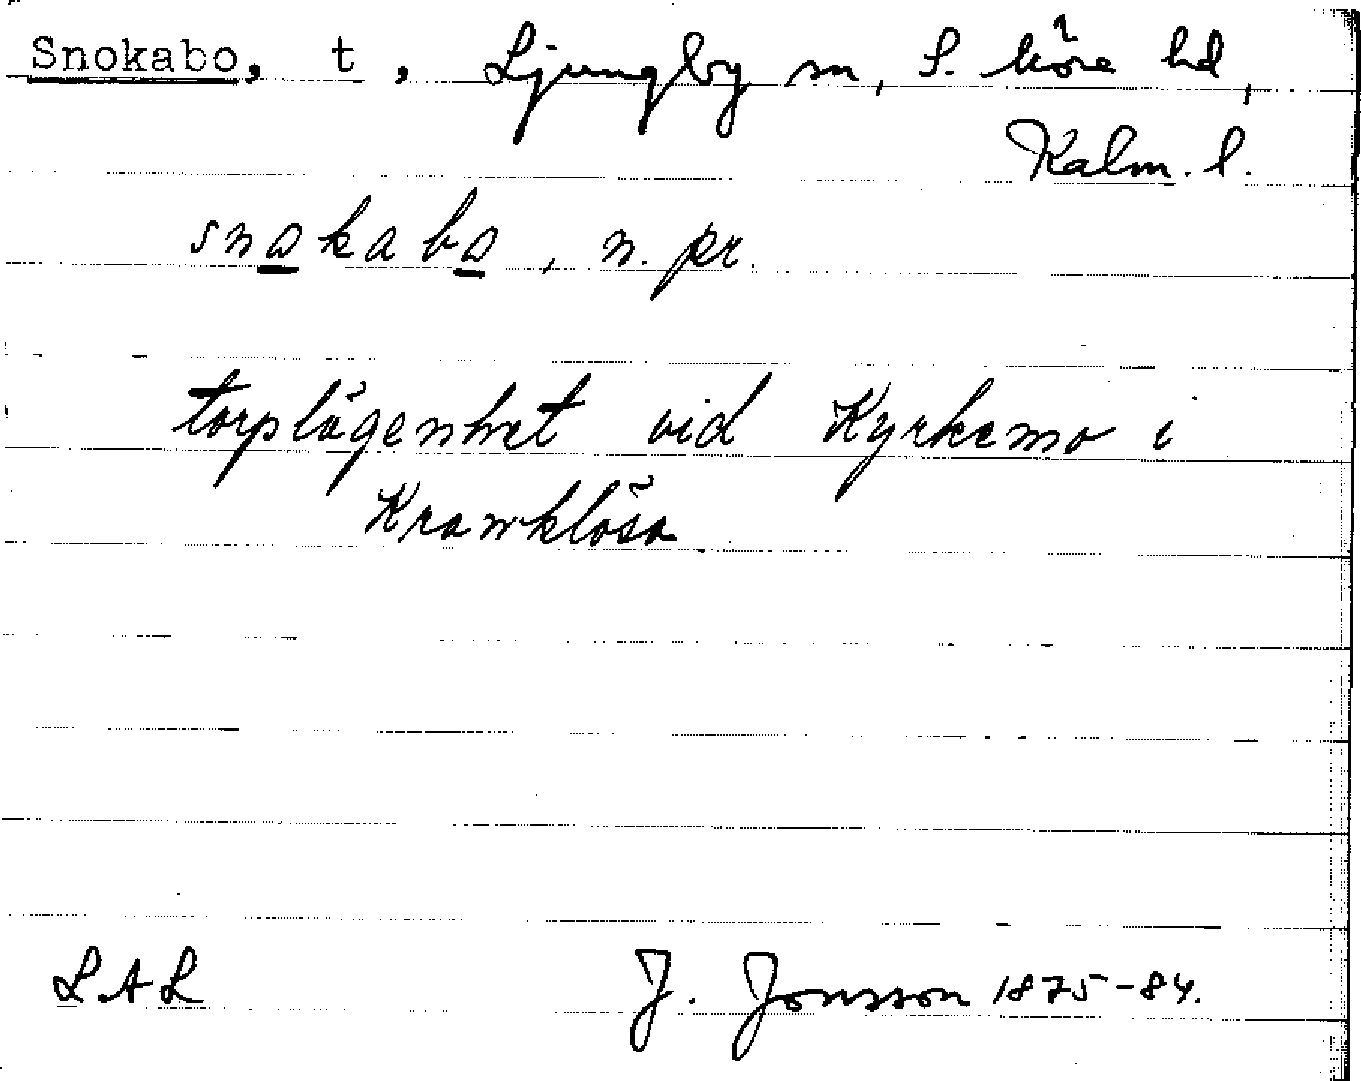 Snokabo, t, Ljungby sn, S. Möre hd,
Kalm. l.
snokabo, n. pr.
torplägenhet vid Kyrkemo i
Kranklösa
LAL
J. Jonsson 1875-84.